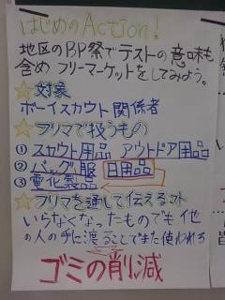 はじめのAction!
地区のBP祭でテストの意味も
含め フリーマーケットをしてみよう。
☆対象
ボーイスカウト関係者
☆フリマで扱うもの
①スカウト用品 アウトドア用品
②バッグ・服 日用品
③電化製品
☆フリマを通して伝えるコト
いらなくなったものでも他
の人の手に渡ることでまた使われる
ゴミの削減